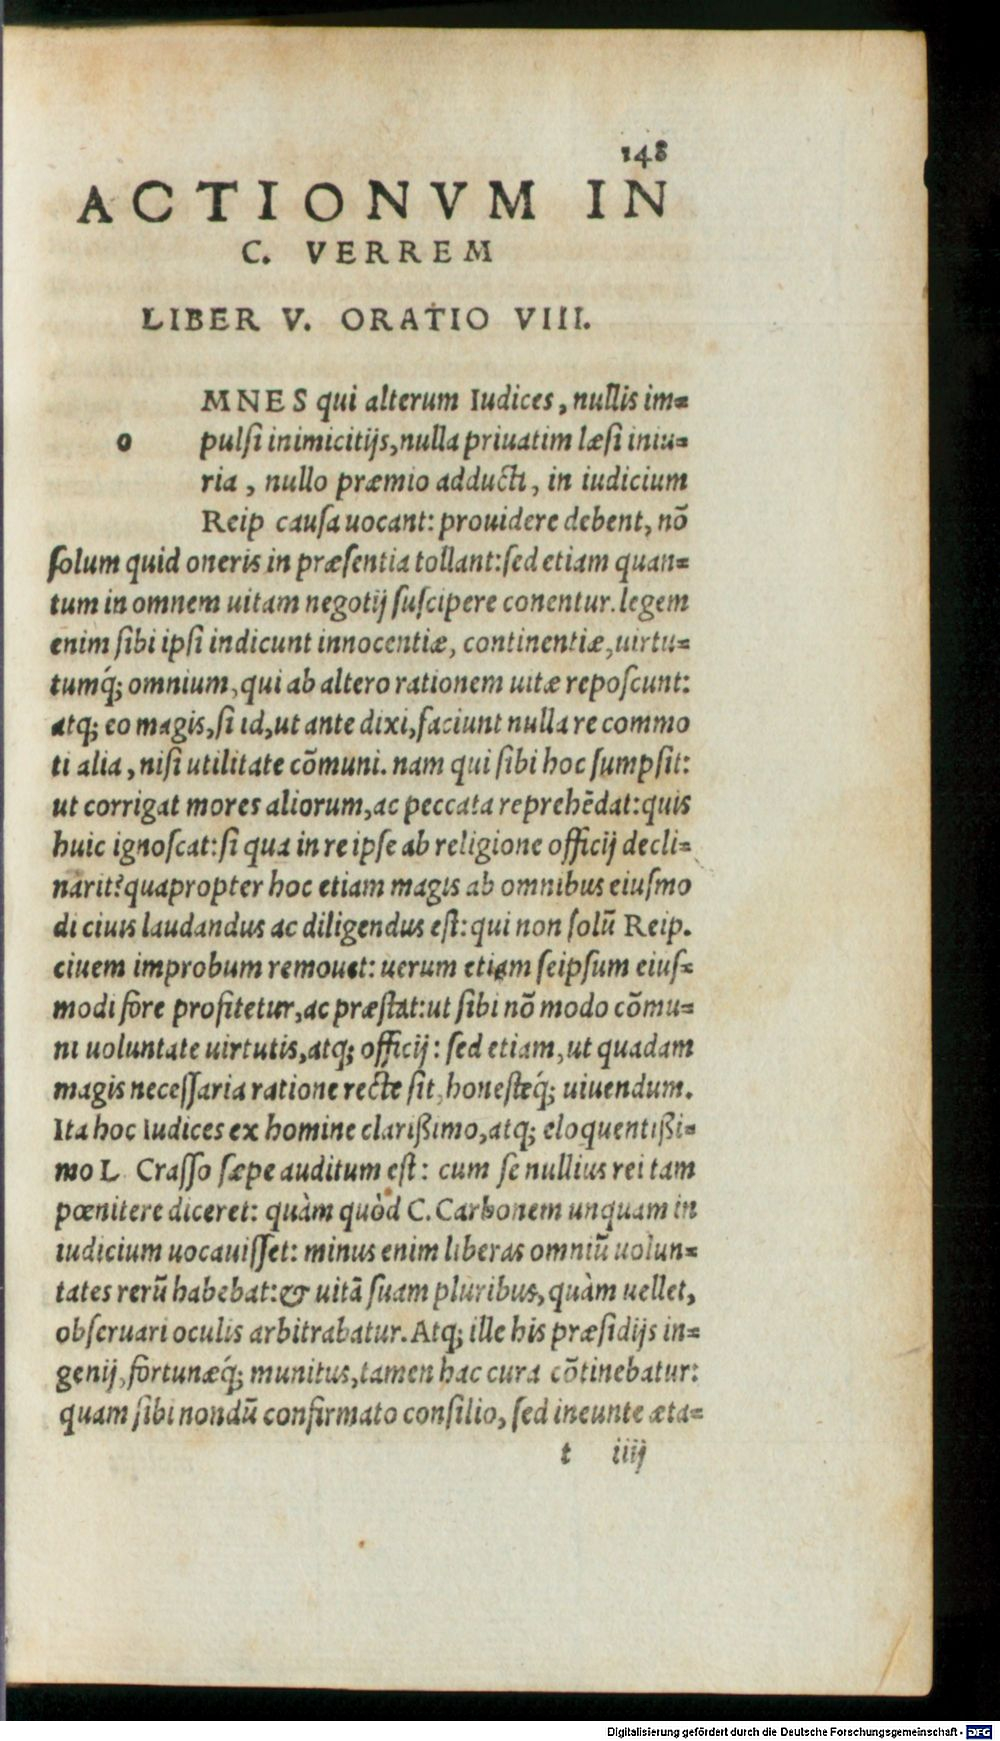 148
ACTIONVM IN
C. VERREM
LIBER V. ORATIO VIII.
MNES qui alterum Iudices, nullis im=
o pulsi inimicitijs, nulla priuatim læsi iniu=
ria, nullo præmio adducti, in iudicium
Reip causa uocant: prouidere debent, nō
solum quid oneris in præsentia tollant: sed etiam quan=
tum in omnem uitam negotij suscipere conentur. legem
enim sibi ipsi indicunt innocentiæ, continentiæ, uirtu=
tumq́; omnium, qui ab altero rationem uitæ reposcunt:
atq; eo magis, si id, ut ante dixi, faciunt nulla re commo
ti alia, nisi utilitate cōmuni. nam qui sibi hoc sumpsit:
ut corrigat mores aliorum, ac peccata reprehēdat: quis
huic ignoscat: si qua in re ipse ab religione officij decli=
narit? quapropter hoc etiam magis ab omnibus eiusmo
di ciuis laudandus ac diligendus est: qui non solū Reip.
ciuem improbum remouet: uerum etiam seipsum eius=
modi fore profitetur, ac præstat: ut sibi nō modo cōmu=
ni uoluntate uirtutis, atq; officij: sed etiam, ut quadam
magis necessaria ratione recte sit, honesteq́; uiuendum.
Ita hoc Iudices ex homine clarißimo, atq; eloquentißi=
mo L Crasso sæpe auditum est: cum se nullius rei tam
pœnitere diceret: quàm quòd C. Carbonem unquam in
iudicium uocauisset: minus enim liberas omniū uolun=
tates rerū habebat: & uitā suam pluribus, quàm uellet,
obseruari oculis arbitrabatur. Atq; ille his præsidijs in=
genij, fortunæq́; munitus, tamen hac cura cōtinebatur:
quam sibi nondū confirmato consilio, sed ineunte æta=
t iiij
Digitalisierung gefördert durch die Deutsche Forschungsgemeinschaft - DFG